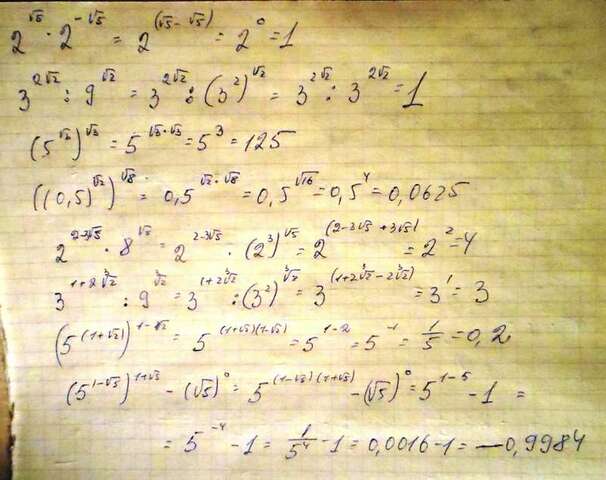 2^√5 · 2^-√5 = 2^(√5-√5) = 2^0 = 1
3^2√2 : 9^√2 = 3^2√2 : (3^2)^√2 = 3^2√2 : 3^2√2 = 1
(5^√3)^√3 = 5^√3·√3 = 5^3 = 125
((0,5)^√2)^√8 = 0,5^√2·√8 = 0,5^√16 = 0,5^4 = 0,0625
2^2-3√5 · 8^√5 = 2^2-3√5 · (2^3)^√5 = 2^(2-3√5+3√5) = 2^2 = 4
3^1+2∛2 : 9^∛2 = 3^1+2∛2 : (3^2)^∛2 = 3^(1+2∛2-2∛2) = 3^1 = 3
(5^(1+√2))^1-√2 = 5^(1+√2)(1-√2) = 5^1-2 = 5^-1 = 1/5 = 0,2
(5^1-√5)^1+√5 - (√5)^0 = 5^(1-√5)(1+√5) - (√5)^0 = 5^1-5 - 1 =
= 5^-4 - 1 = 1/5^4 - 1 = 0,0016 - 1 = -0,9984